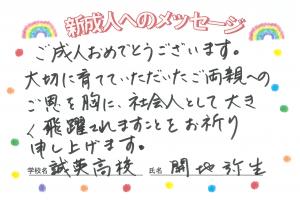 新成人へのメッセージ
ご成人おめでとうございます。
大切に育てていただいたご両親への
ご恩を胸に、社会人として大き
く飛躍されますことをお祈り
申し上げます。
学校名 誠英高校 氏名 開地弥生